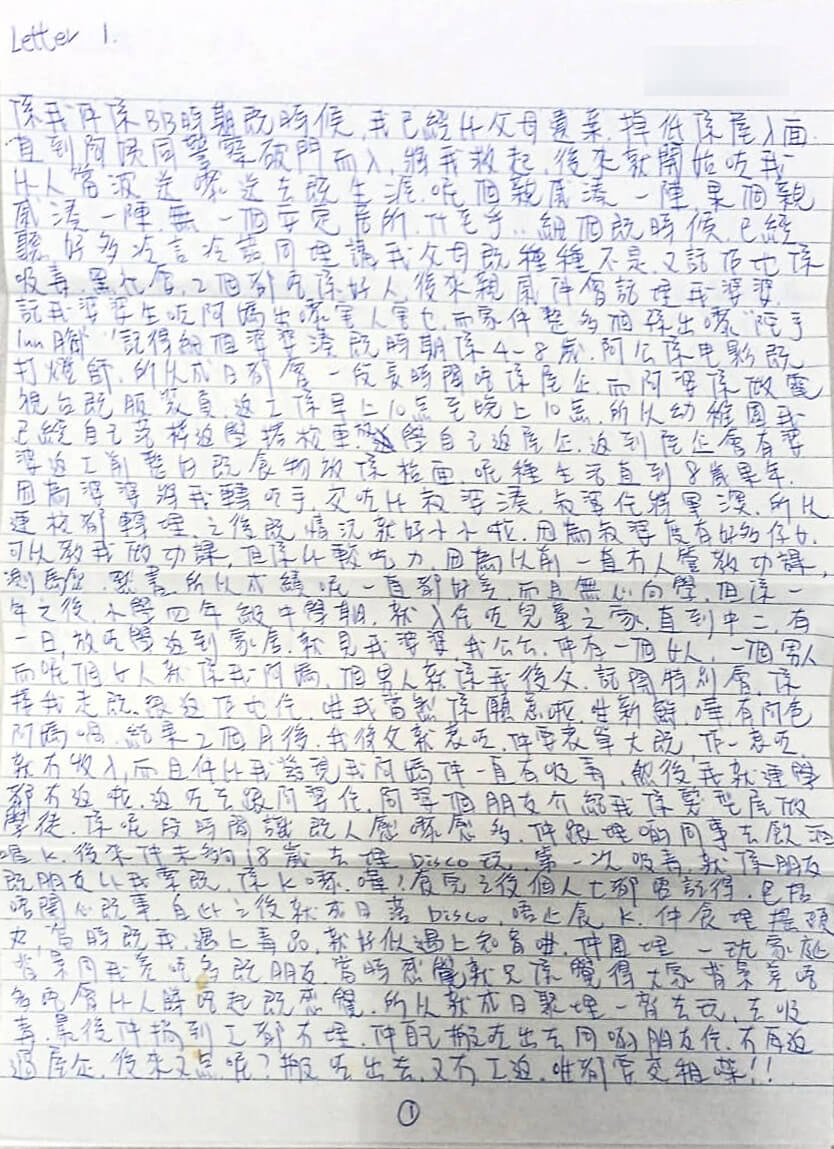 Letter 1.
係我仲係BB時期既時候,我已經比父母遺棄,掉低係屋入面.
直到阿姨同警察破門而入,將我救起,後來就開始咗我
比人當波逆嚟逆去既生涯.呢個親戚湊一陣,果個親
戚湊一陣,無一個安定居所.甘至乎..細個既時候,已經
聽好多冷言冷語同埋講我父母既種種不是,又話佢地係
吸毒,黑社會,2個都唔係好人,後來親戚仲會話埋我婆婆.
話我婆婆生咗阿媽出嚟害人害己,而家仲整多個孫出嚟"陀手
lun腳".記得細個婆婆湊既時期係4-8歲.阿公係電影既
打燈師,所以成日都會一段長時間唔係屋企,而阿婆係做電
視台既服裝員,返工係早上10點至晚上10點,所以幼稚園我
已經自己落樓返學搭校車,放學自己返屋企,返到屋企會有婆
婆返工前整日既食物放係枱面.呢種生活直到8歲果年.
因為婆婆將我轉咗手,交咗比叔婆湊,叔婆住將軍澳,所以
連校都轉埋.之後既情況就好小小啦,因為叔婆度有好多仔女,
可以教我做功課,但係比較吃力,因為以前一直冇人管教功課,
測驗,默書,所以成績呢一直都好差,而且無心向學.但係一
年之後,小學四年級中學期,就入住咗兒童之家,直到中二,有
一日,放咗學返到家居,就見我婆婆,我公公,仲有一個女人,一個男人
而呢個女人就係我阿媽,個男人就係我後父,話間特別層,係
接我走既,返返佢地住.咁我當然係願意啦.咁新鮮,嘩,有阿爸
阿媽喎.結果2個月後,我後父就衰咗,仲要衰單大既,佢一衰咗,
就冇收入,而且仲比我發現我阿媽仲一直有吸毒,然後,我就連學
都冇返啦.返咗去跟阿婆住,同婆個朋友介紹我係髮型屋做
學徒.係呢段時間識既人愈嚟愈多,仲跟埋啲同事去飲酒
唱K.後來仲未夠18歲去埋Disco玩,第一次吸毒,就係朋友
既朋友比我索既,係K嚟.嘩!食完之後個人乜都唔記得,包括
唔開心既事,自此之後就成日落Disco,唔止食K,仲食埋搖頭
丸,當時既我,遇上毒品,就好似遇上知音咁.仲圍埋一班家庭
背景同我差唔多既朋友.當時感覺就只係覺得大家背景差唔
多唔會比人睇唔起既感覺.所以就成日聚埋一齊去玩,去吸
毒.最後仲搞到工都冇埋.仲自己搬咗出去同啲朋友住.冇再返
過屋企.後來又點呢?搬咗出去,又冇工返,咁都要交租㗎!!
①